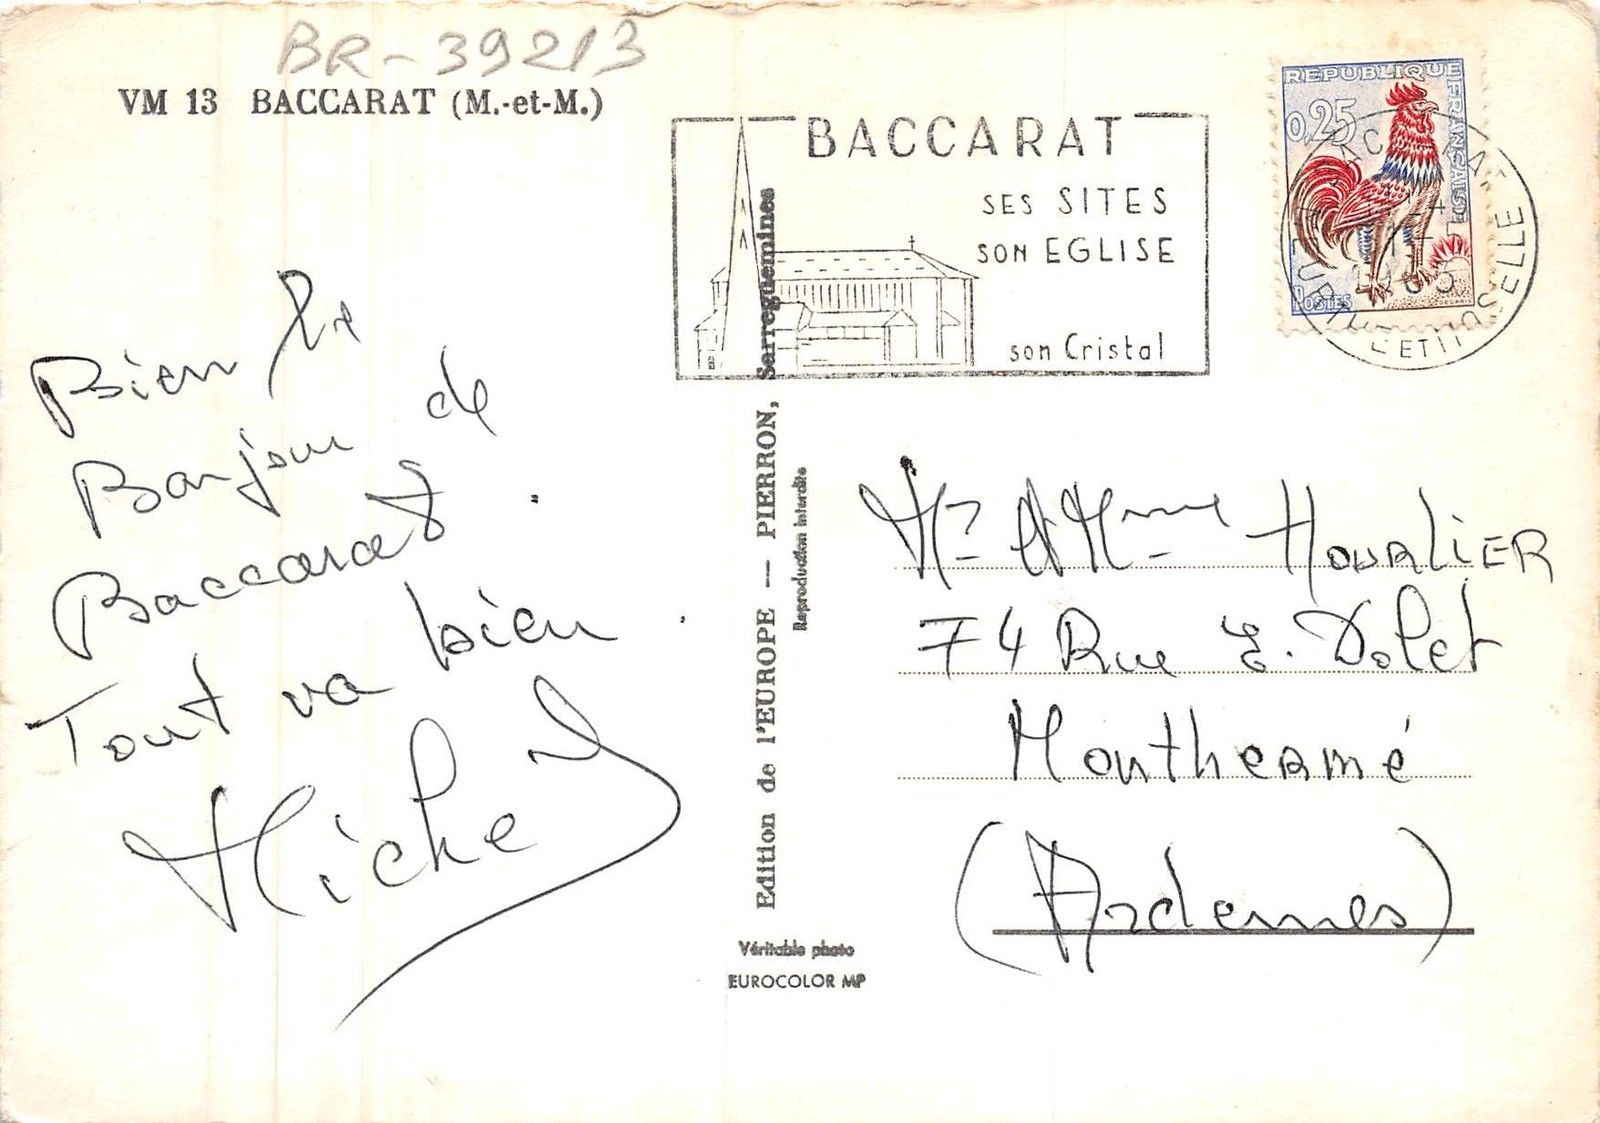 BR-39213
VM 13 BACCARAT (M.-et-M.)
BACCARAT
SES SITES
SON EGLISE
son Cristal
REPUBLIQUE
FRANCAISE
0,25
POSTES
DECARIS
MEURTHE ET MOSELLE
Bien le
Bonjour de
Baccarat.
Tout va bien.
Michel
Edition de l'EUROPE — PIERRON, Sarreguemines
Reproduction interdite
Véritable photo
EUROCOLOR MP
Mr et Mme HOURLIER
74 Rue E. Dolet
Monthermé
(Ardennes)